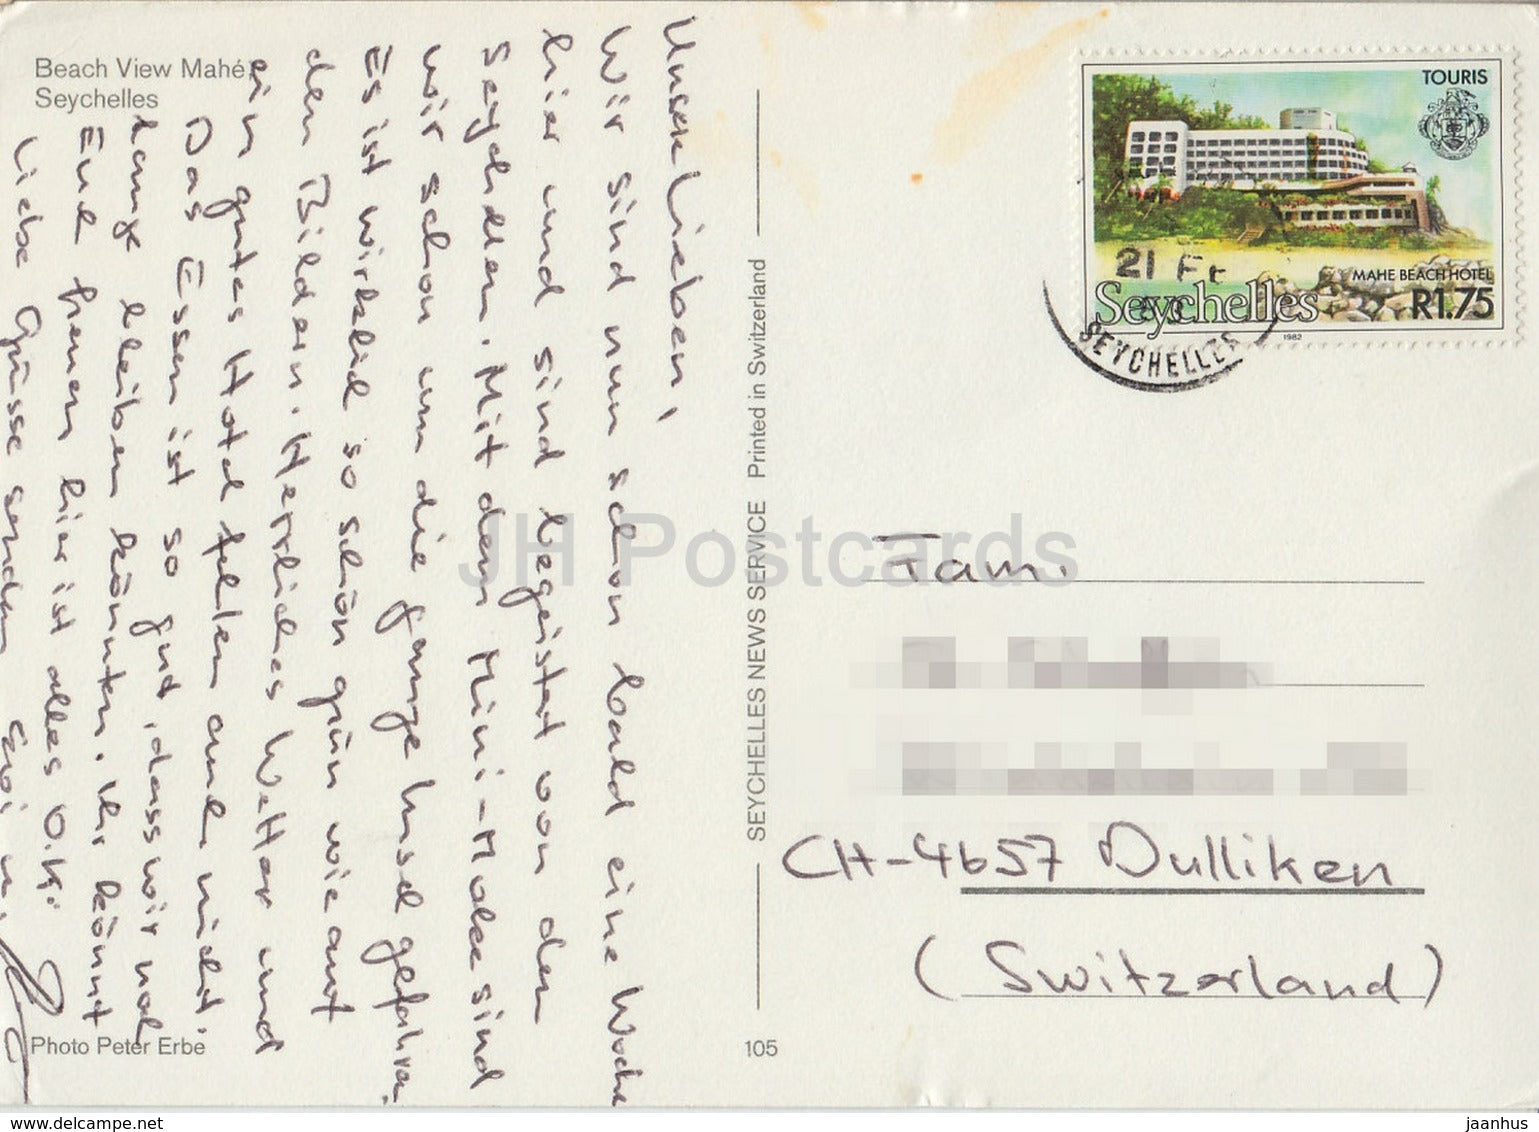 Beach View Mahé,
Seychelles
Unsere Lieben,
Wir sind nun schon bald eine Woche
hier und sind begeistert von den
Seychellen. Mit dem Mini-Moke sind
wir schon um die ganze Insel gefahren.
Es ist wirklich so schön grün wie auf
den Bildern. Herrliches Wetter und
ein gutes Hotel fehlen auch nicht.
Das Essen ist so gut, dass wir noch
lange bleiben könnten. Ihr könnt
Euch freuen hier ist alles O.K.
Liebe Grüsse senden
Photo Peter Erbe
SEYCHELLES NEWS SERVICE Printed in Switzerland
105
TOURIS
MAHE BEACH HOTEL
Seychelles R1.75
1982
21 FE
83
SEYCHELLES
Fam.
CH-4657 Dulliken
(Switzerland)
JH Postcards
www.delcampe.net
jaanhus